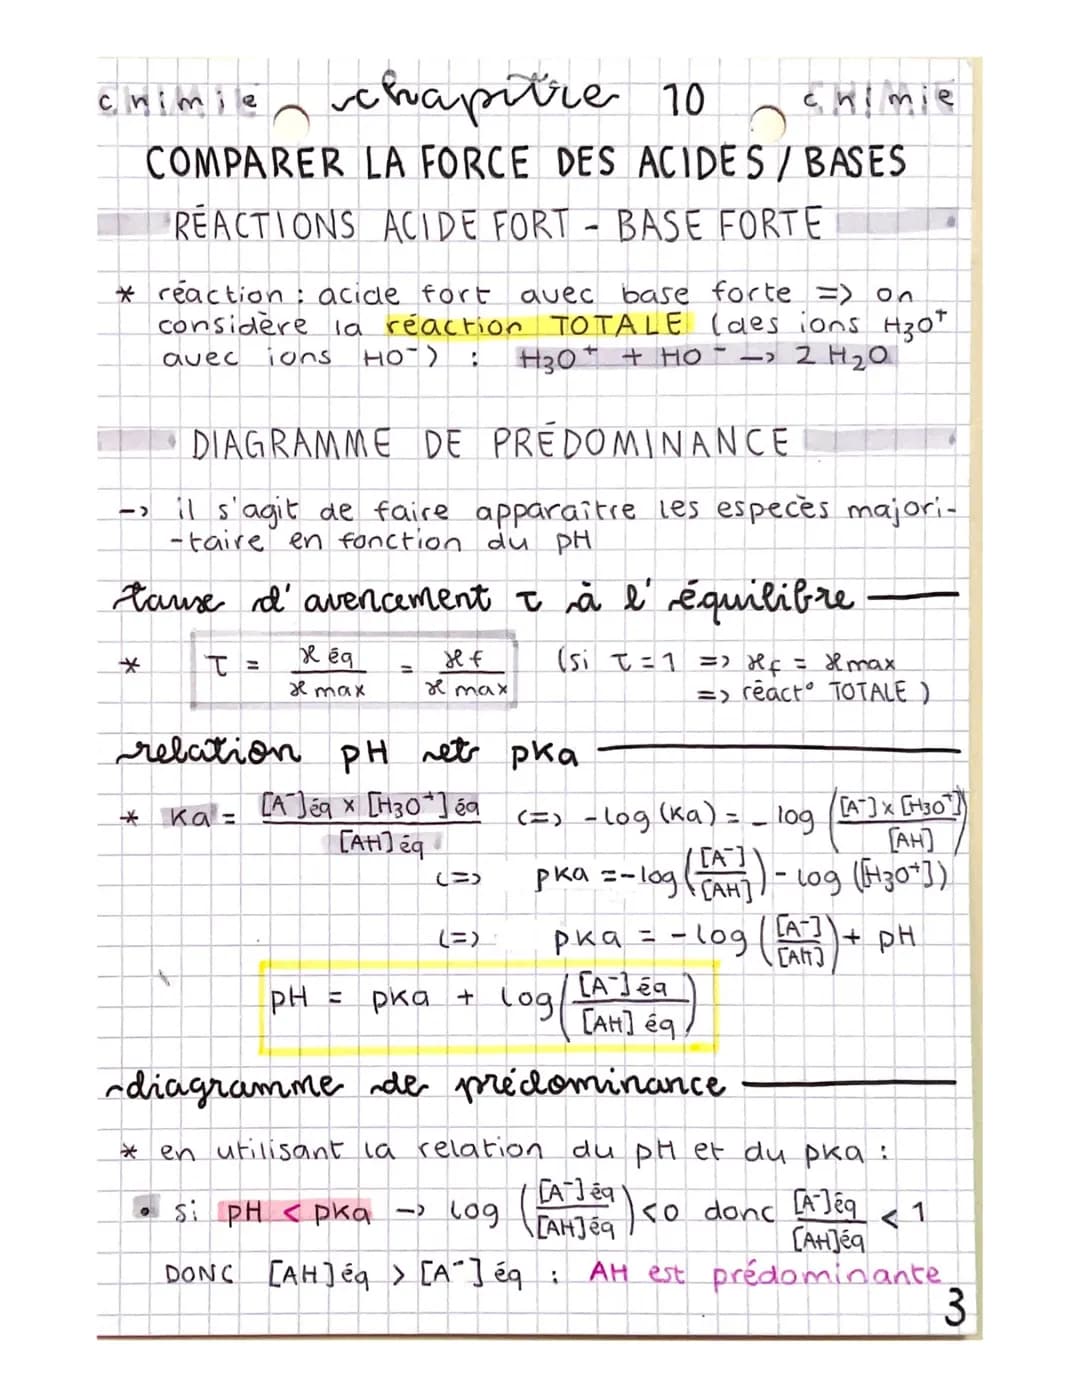 chimie chapitre 10 chimie
COMPARER LA FORCE DES ACIDES / BASES
RÉACTIONS ACIDE FORT - BASE FORTE
* réaction : acide fort avec base forte => on
considère la réaction TOTALE (des ions H3O⁺
avec ions HO⁻) : H3O⁺ + HO⁻ -> 2 H2O
DIAGRAMME DE PRÉDOMINANCE
-> il s'agit de faire apparaître les especès majori-
-taire en fonction du pH
taux d'avencement τ à l'équilibre
* τ = x éq / x max = x f / x max (si τ = 1 => xf = xmax
=> réact° TOTALE )
relation pH et pka
* Ka = [A⁻]éq x [H3O⁺]éq / [AH]éq (=> -log (Ka) = - log ([A⁻] x [H3O⁺] / [AH])
(=> pKa = -log ([A⁻] / [AH]) - log ([H3O⁺])
(=> pKa = -log ([A⁻] / [AH]) + pH
pH = pka + log ([A⁻]éq / [AH]éq)
diagramme de prédominance
* en utilisant la relation du pH et du pka :
• si pH < pka -> log ([A⁻]éq / [AH]éq) < 0 donc [A⁻]éq / [AH]éq < 1
DONC [AH]éq > [A⁻]éq : AH est prédominante
3